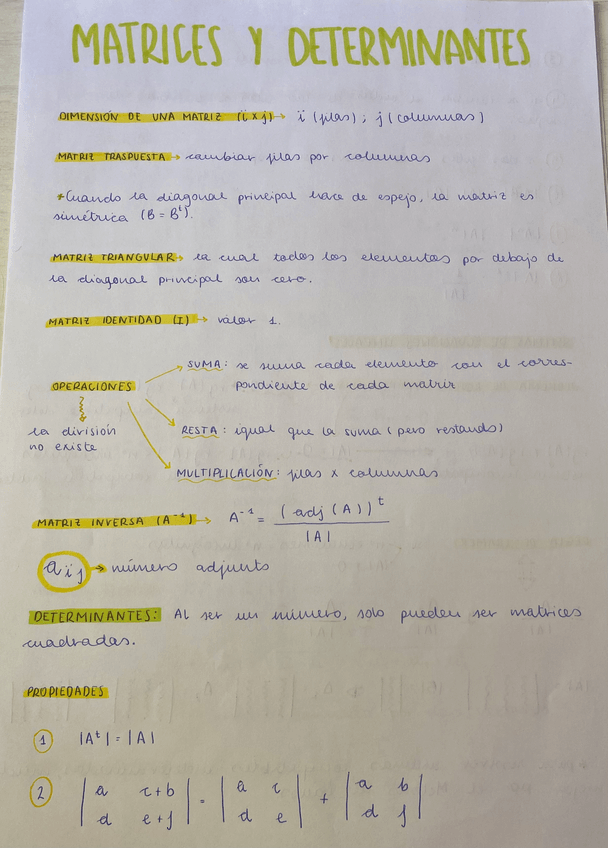 MATRICES Y DETERMINANTES
DIMENSIÓN DE UNA MATRIZ (i x j) → i (filas) ; j (columnas)
MATRIZ TRASPUESTA → cambiar filas por columnas
*Cuando la diagonal principal hace de espejo, la matriz es
simétrica (B = Bᵗ).
MATRIZ TRIANGULAR → la cual todos los elementos por debajo de
la diagonal principal son cero.
MATRIZ IDENTIDAD (I) → valor 1.
OPERACIONES
la división
no existe
SUMA: se suma cada elemento con el corres-
pondiente de cada matriz
RESTA: igual que la suma (pero restando)
MULTIPLICACIÓN: filas x columnas
MATRIZ INVERSA (A⁻¹) → A⁻¹ = (adj (A))ᵗ / |A|
aij → número adjunto
DETERMINANTES: Al ser un número, solo pueden ser matrices
cuadradas.
PROPIEDADES
1 |Aᵗ| = |A|
2 | a c+b | = | a c | + | a b |
| d e+f | | d e | | d f |